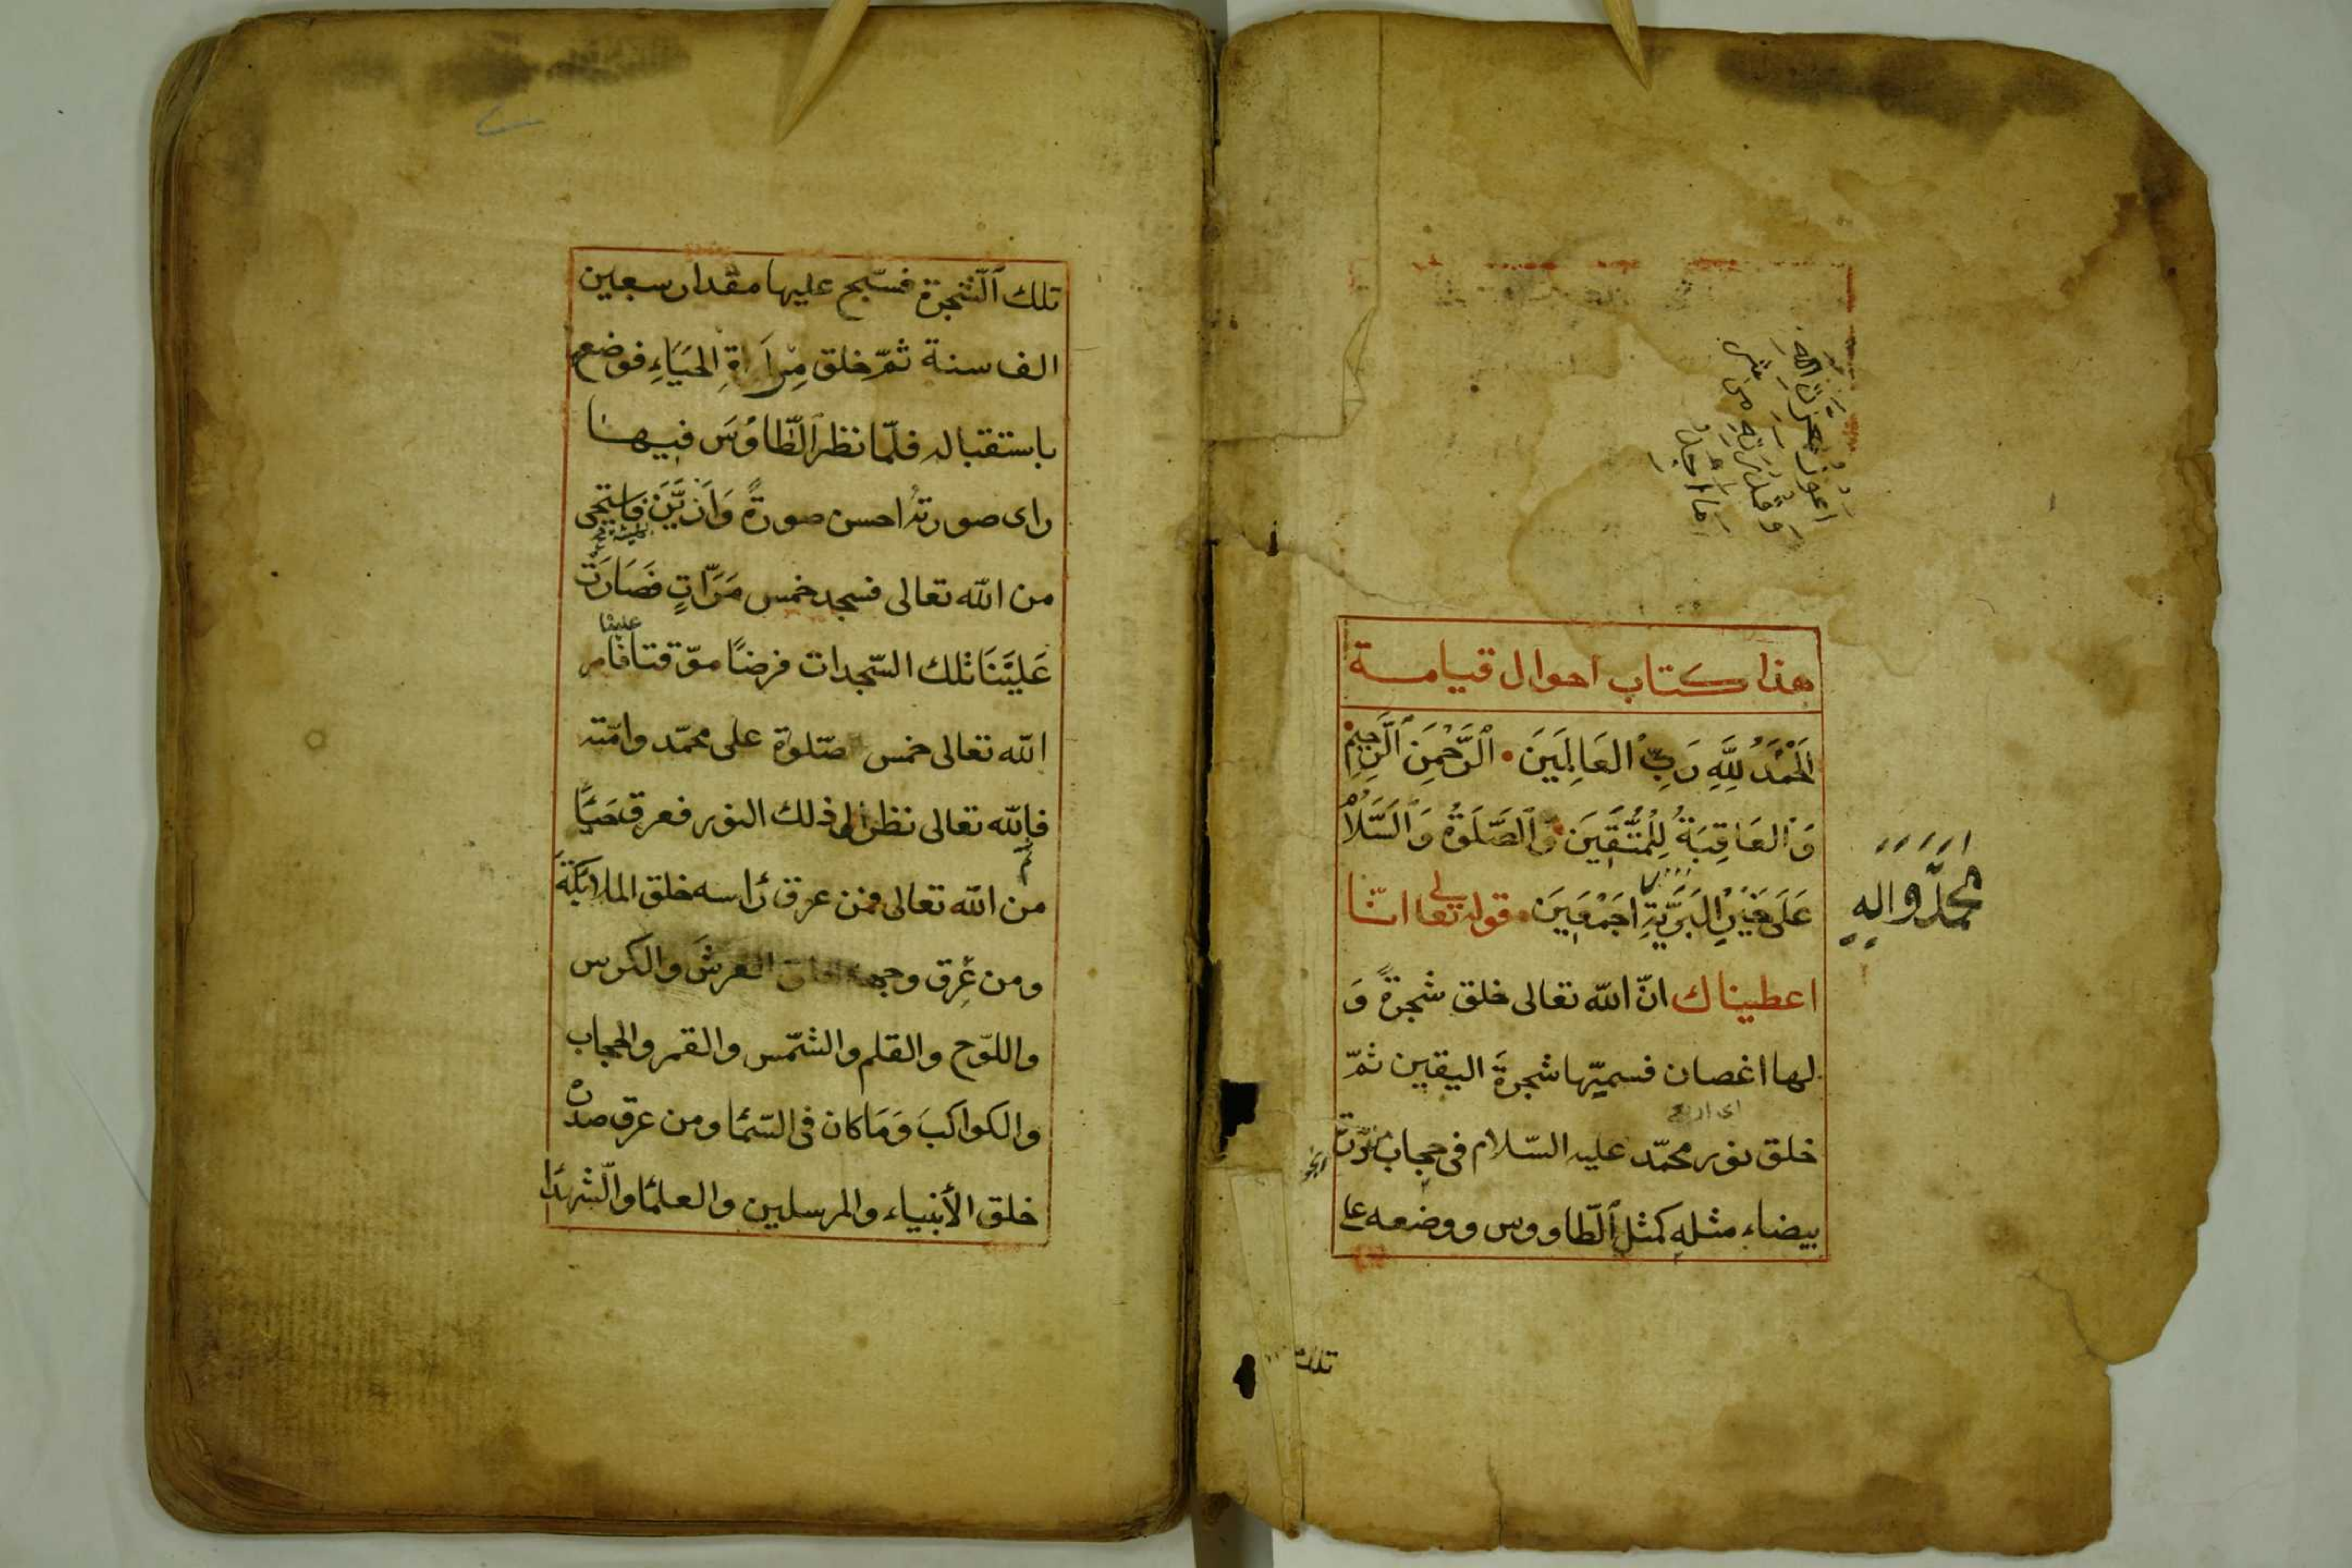 اعوذ بعزة الله
وقدرته من شر
ما اجد
هذا كتاب احوال قيامة
اَلْحَمْدُ لِلَّهِ رَبِّ الْعَالَمِينَ الرَّحْمَنِ الرَّحِيمِ
وَالْعَاقِبَةُ لِلْمُتَّقِينَ وَالصَّلَوةُ وَالسَّلَامُ
عَلَى خَيْرِ الْبَرِيَّةِ اَجْمَعِينَ قوله تعالى انا
محمد واله
اعطيناك انّ الله تعالى خلق شجرةً وَ
لها اغصان فسميّها شجرةَ اليقين ثمّ
خلق نور محمّد عليه السّلام فى حجاب
بيضاء مثلهِ كمثل الطّاووس ووضعه على
تلك
تلك الشّجرة فسّبح عليها مقدار سبعين
الف سنة ثمّ خلق مِرْاَةِ الحَيَاءِ فوضع
باستقباله فلمّا نظر الطّاوُسَ فيها
راى صورتهُ احسن صورةً وَاَزيَّنَ فاستحى
من الله تعالى فسجد خمس مَرّاتٍ فصَارَت
علينا
عَلَيْنَا تلك السّجدات فرضًا موّقتا فامر
الله تعالى خمس صّلوة على محمّد وامّته
فالله تعالى نظر الى ذلك النور فعرق حَيَاءً
من الله تعالى فمن عرق رَاسه خلق الملائكةَ
ومن عرق وجهه خلق العرشَ والكرس
واللوّح والقلم والشّمس والقمر والحجاب
والكواكبَ وَمَا كان فى السّماء ومن عرق صدره
خلق الأنبياء والمرسلين والعلماء والشّهداء